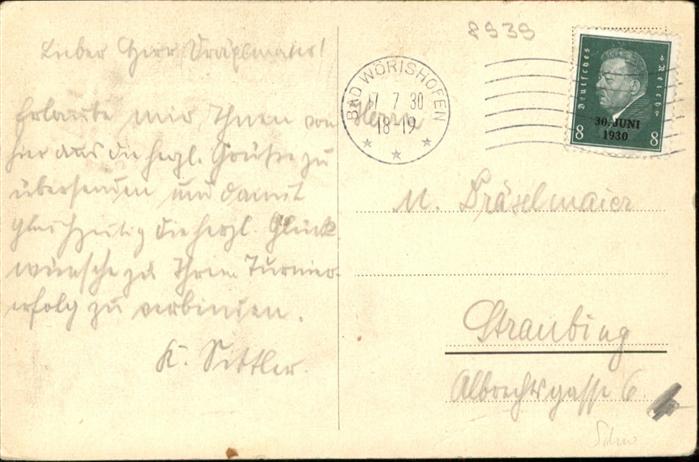 Lieber Herr Dräxlmaier!
Erlaube mir Ihnen von
hier aus die herzl. Grüsse zu
übersenden und damit
gleichzeitig die herzl. Glück
wünsche zu Ihrem Turnier-
erfolg zu verbinden.
K. Settler.
8939
BAD WÖRISHOFEN
17 7 30
18-19
Deutsches Reich
30. JUNI
1930
8 8
Herrn
M. Dräselmaier
Straubing
Albrechtsgasse 6